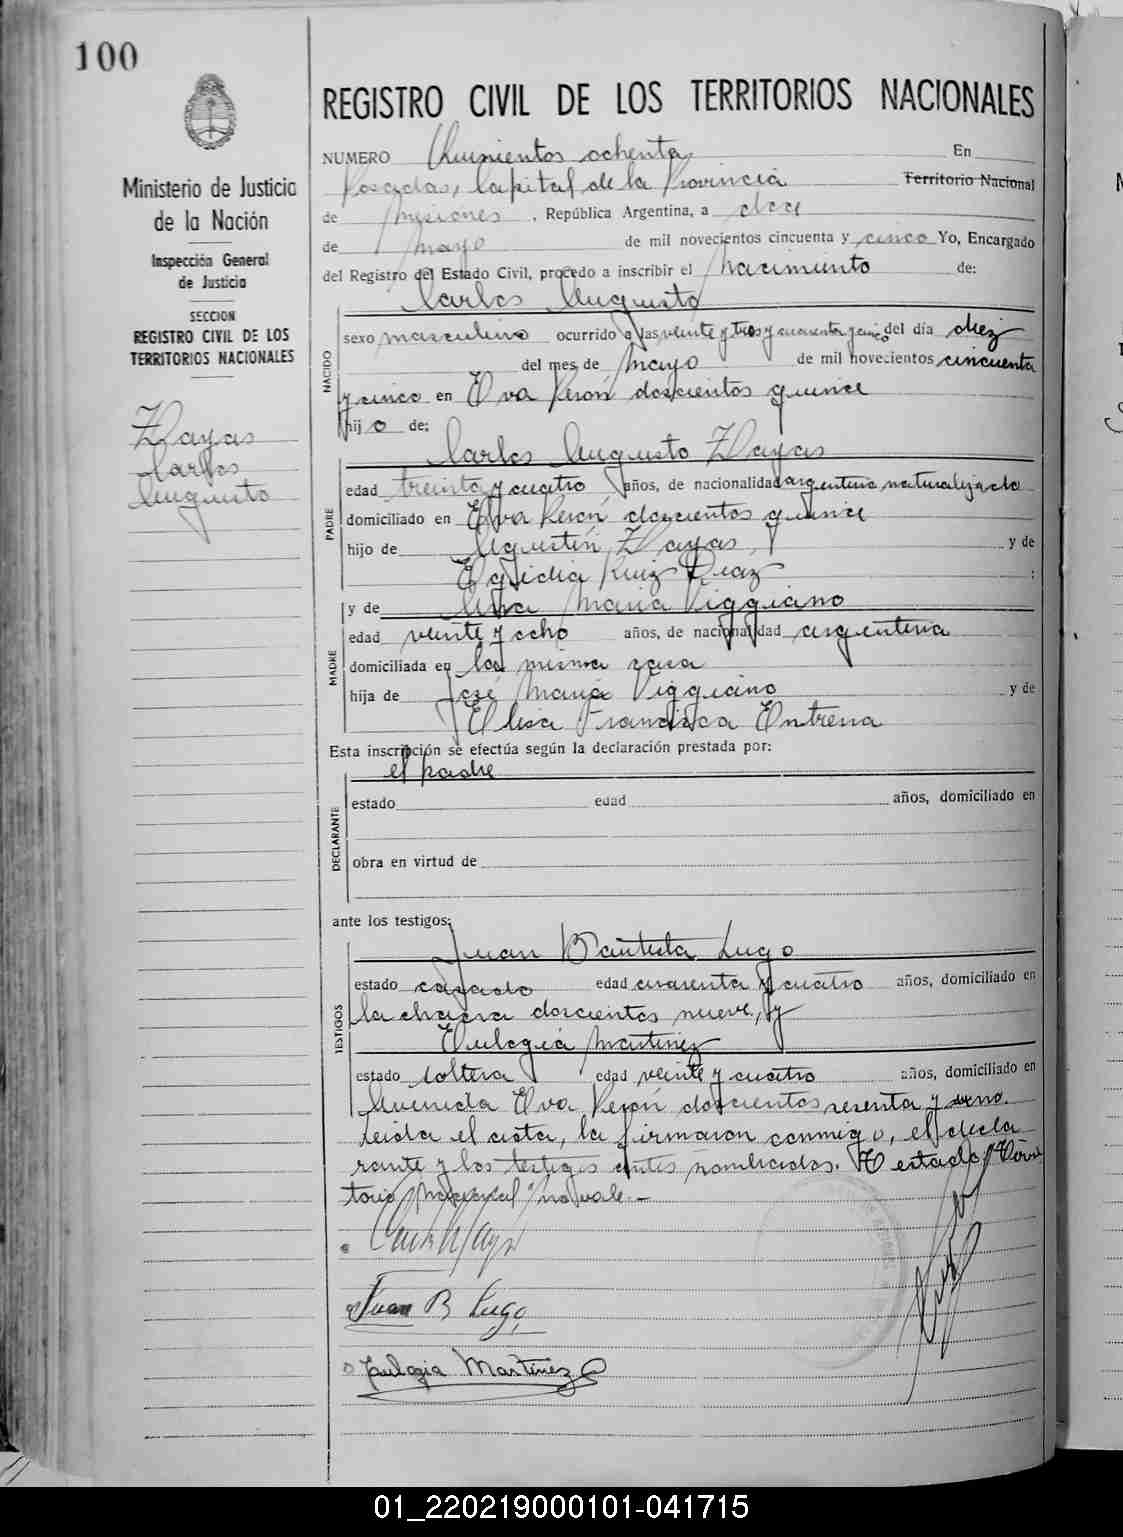 100
REGISTRO CIVIL DE LOS TERRITORIOS NACIONALES
Ministerio de Justicia
de la Nación
Inspección General
de Justicia
SECCION
REGISTRO CIVIL DE LOS
TERRITORIOS NACIONALES
Llayas
Carlos
Augusto
NUMERO Quinientos ochenta En
Posadas, Capital de la Provincia Territorio Nacional
de Misiones, República Argentina, a doce
de mayo de mil novecientos cincuenta y cinco Yo, Encargado
del Registro del Estado Civil, procedo a inscribir el nacimiento de:
Carlos Augusto
NACIDO
sexo masculino ocurrido a las veinte y tres y cuarenta y cinco del día diez
del mes de mayo de mil novecientos cincuenta
y cinco en Eva Perón doscientos quince
hijo de:
Carlos Augusto Llayas
PADRE
edad treinta y cuatro años, de nacionalidad argentino naturalizado
domiciliado en Eva Perón doscientos quince
hijo de Agustín Llayas y de
Egidia Ruiz Diaz :
MADRE
y de Ana Maria Viggiano
edad veinte y ocho años, de nacionalidad argentina
domiciliada en la misma casa
hija de José Maria Viggiano y de
Elisa Francisca Entrena
Esta inscripción se efectúa según la declaración prestada por:
el padre
DECLARANTE
estado edad años, domiciliado en
obra en virtud de
ante los testigos:
Juan Bautista Lugo
TESTIGOS
estado casado edad cuarenta y cuatro años, domiciliado en
la chacra doscientos nueve, y
Eulogia Martinez
estado soltera edad veinte y cuatro años, domiciliado en
Avenida Eva Perón doscientos sesenta y uno.
Leida el acta, la firmaron conmigo, el decla
rante y los testigos antes nombrados. El testado "Terri
torio Nacional" no vale.-
Juan B Lugo
Eulogia Martinez
01_220219000101-041715